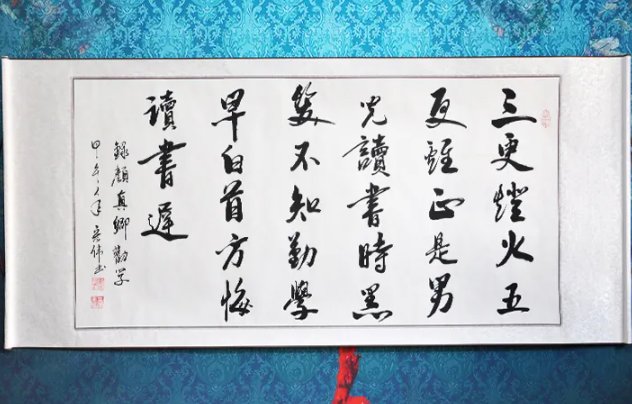 三更燈火五
更雞正是男
兒讀書時黑
髮不知勤學
早白首方悔
讀書遲
錄顏真卿勸学
甲午年伟书